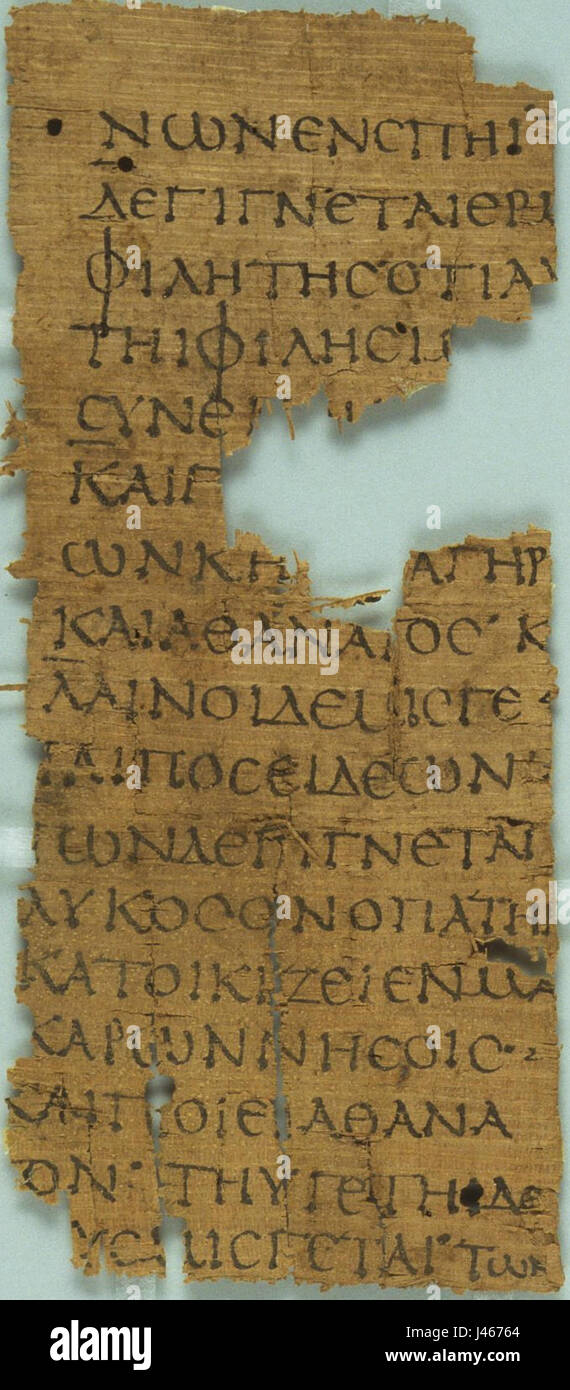 ΝΩΝΕΝΣΠΗΙ
ΔΕΓΙΓΝΕΤΑΙΕΡΜ
ΦΙΛΗΤΗΣΟΤΙΑΥ
ΤΗΙΦΙΛΗΣΙΜ
ΣΥΝΕ
ΚΑΙΓ
ΩΝΚΗ ΑΓΗΡ
ΚΑΙΑΘΑΝΑΤΟΣ˙Κ
ΛΑΙΝΟΙΔΕΜΙΣΓΕ
ΤΑΙΠΟΣΕΙΔΕΩΝ˙
ΤΩΝΔΕΓΙΓΝΕΤΑΙ
ΛΥΚΟΣΟΝΟΠΑΤΗΡ
ΚΑΤΟΙΚΙΖΕΙΕΝΜΑ
ΚΑΡΩΝΝΗΣΟΙΣ
ΚΑΙΠΟΙΕΙΑΘΑΝΑ
ΟΝ˙ΤΗΥΓΕΤΗΙΔΕ
ΥΣΜΙΣΓΕΤΑΙ˙ΤΩΝ
alamy stock photo
J46764
www.alamy.com